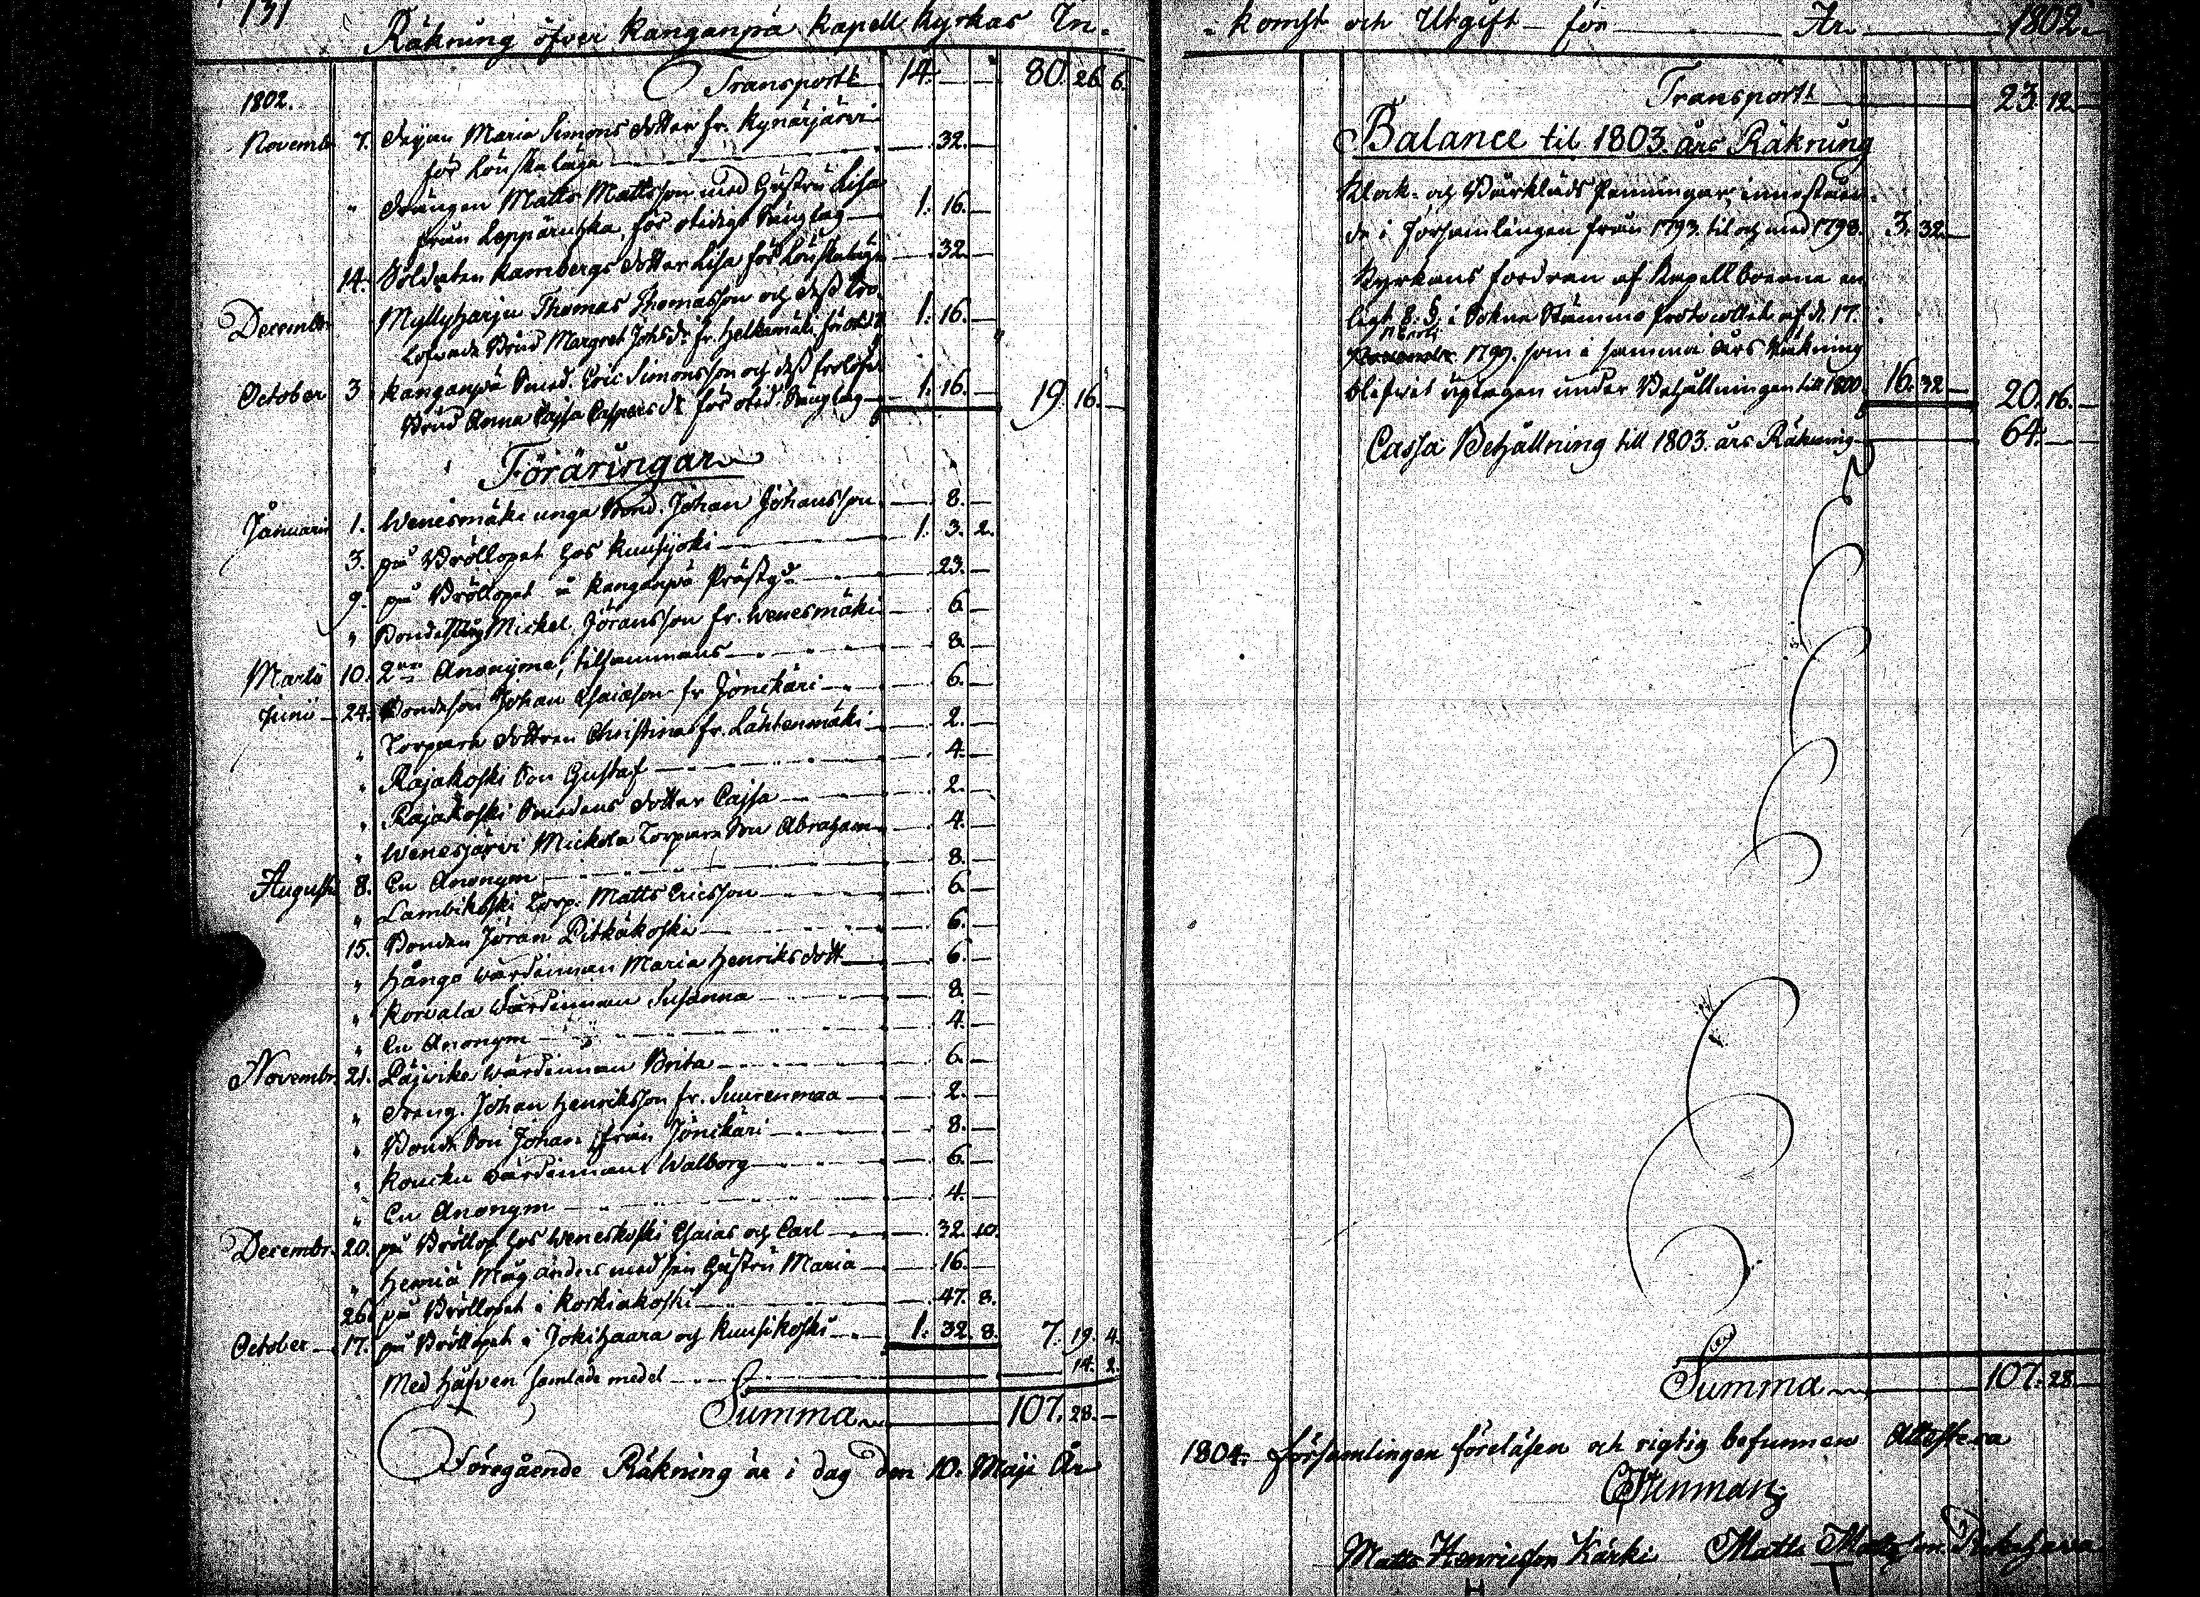 131
Räkning öfver Kanganpä Kapell Kyrkas In-
Transport 14. — — 80. 26. 6.
1802.
Novembr 7. Pigan Maria Simons dotter fr. Kynärjärvi
för Löuskaläge — 32. —
" Drängen Matts Mattsson med Hustru Lisa
från Leppäruhka för otidigt Sänglag — 1. 16. —
14. Soldaten Kambergs dotter Lisa för Löuskaläge — 32. —
Decembr Myllyharju Thomas Thomasson och dess tro-
lofvade Brud Margret Johsdr fr. Helkamäki för 1. 16. —
October 3 Kanganpä Smed. Eric Simonsson och dess trolofv.
Brud Anna Cajsa Caspersdr för otid. Sänglag — 1. 16. — 19. 16. —
Föräringar
Januarii 1. Wenesmäki unga Bond. Johan Johansson — 8. —
3. på Bröllopet hos Kuusijoki — 1. 3. 2.
9. på Bröllopet å Kanganpä Prästgd — 23. —
" Mickel Jöransson fr. Wenesmäki — 6. —
Martii 10. 2ne Anonyme, tillsammans — 8. —
Junii 24. Bondeson Johan Esaiæson fr Jönikäri — 6. —
" Torpare dottren Christina fr. Lähtenmäki — 2. —
" Rajakoski Son Gustaf — 4. —
" Rajakoski Smedens dotter Cajsa — 2. —
" Wenesjärvi Mickola Torpare Son Abraham — 4. —
Augusti 8. En Anonym — 8. —
" Lambikoski Torp. Matts Ericsson — 6. —
15. Bonden Jöran Pitkäkoski — 6. —
" Hångo wärdinnan Maria Henriksdott — 6. —
" Korvala Wärdinnan Susanna — 8. —
" En Anonym — 4. —
Novembr. 21. Päjvike wärdinnan Brita — 6. —
" Dreng. Johan Henriksson fr. Suurenmaa — 2. —
" Bonde Son Johan ifrån Jönikäri — 8. —
" Koucku wärdinnan Walborg — 6. —
" En Anonym — 4. —
Decembr. 20. på Bröllop hos Weneskoski Esaias och Carl — 32. 10.
" Heeniä Måg Anders med sin Hustru Maria — 16. —
26. på Bröllopet i Koskiakoski — 47. 8.
October 17. på Bröllopet i Jokihaara och Kuusikoski — 1. 32. 8. 7. 19. 4.
Med Håfven samlade medel — 14. 2.
Summa — 107. 28. —
Föregående Räkning är i dag den 10. Maji År
-komst och Utgift för År 1802.
Transport 23. 12. —
Balance til 1803. års Räkning
Klock- och Bårkläds Penningar, innestäen-
de i Församlingen från 1793. til och med 1798. 3. 32. —
Kyrkans fordran af Kapellboerne en-
ligt 8. § i Sokne Stämmo Protocollet af d. 17.
Martii
1799. som i samma års Räkning
blifvit uptagen under Behållningen till 1800. 16. 32 — 20. 16. —
Cassa Behållning till 1803. års Räkning — 64. — —
Summa — 107. 28 —
1804. Församlingen föreläsen och rigtig befunnen Attestera
Matts Henricsson Kärki Matts Mattsson